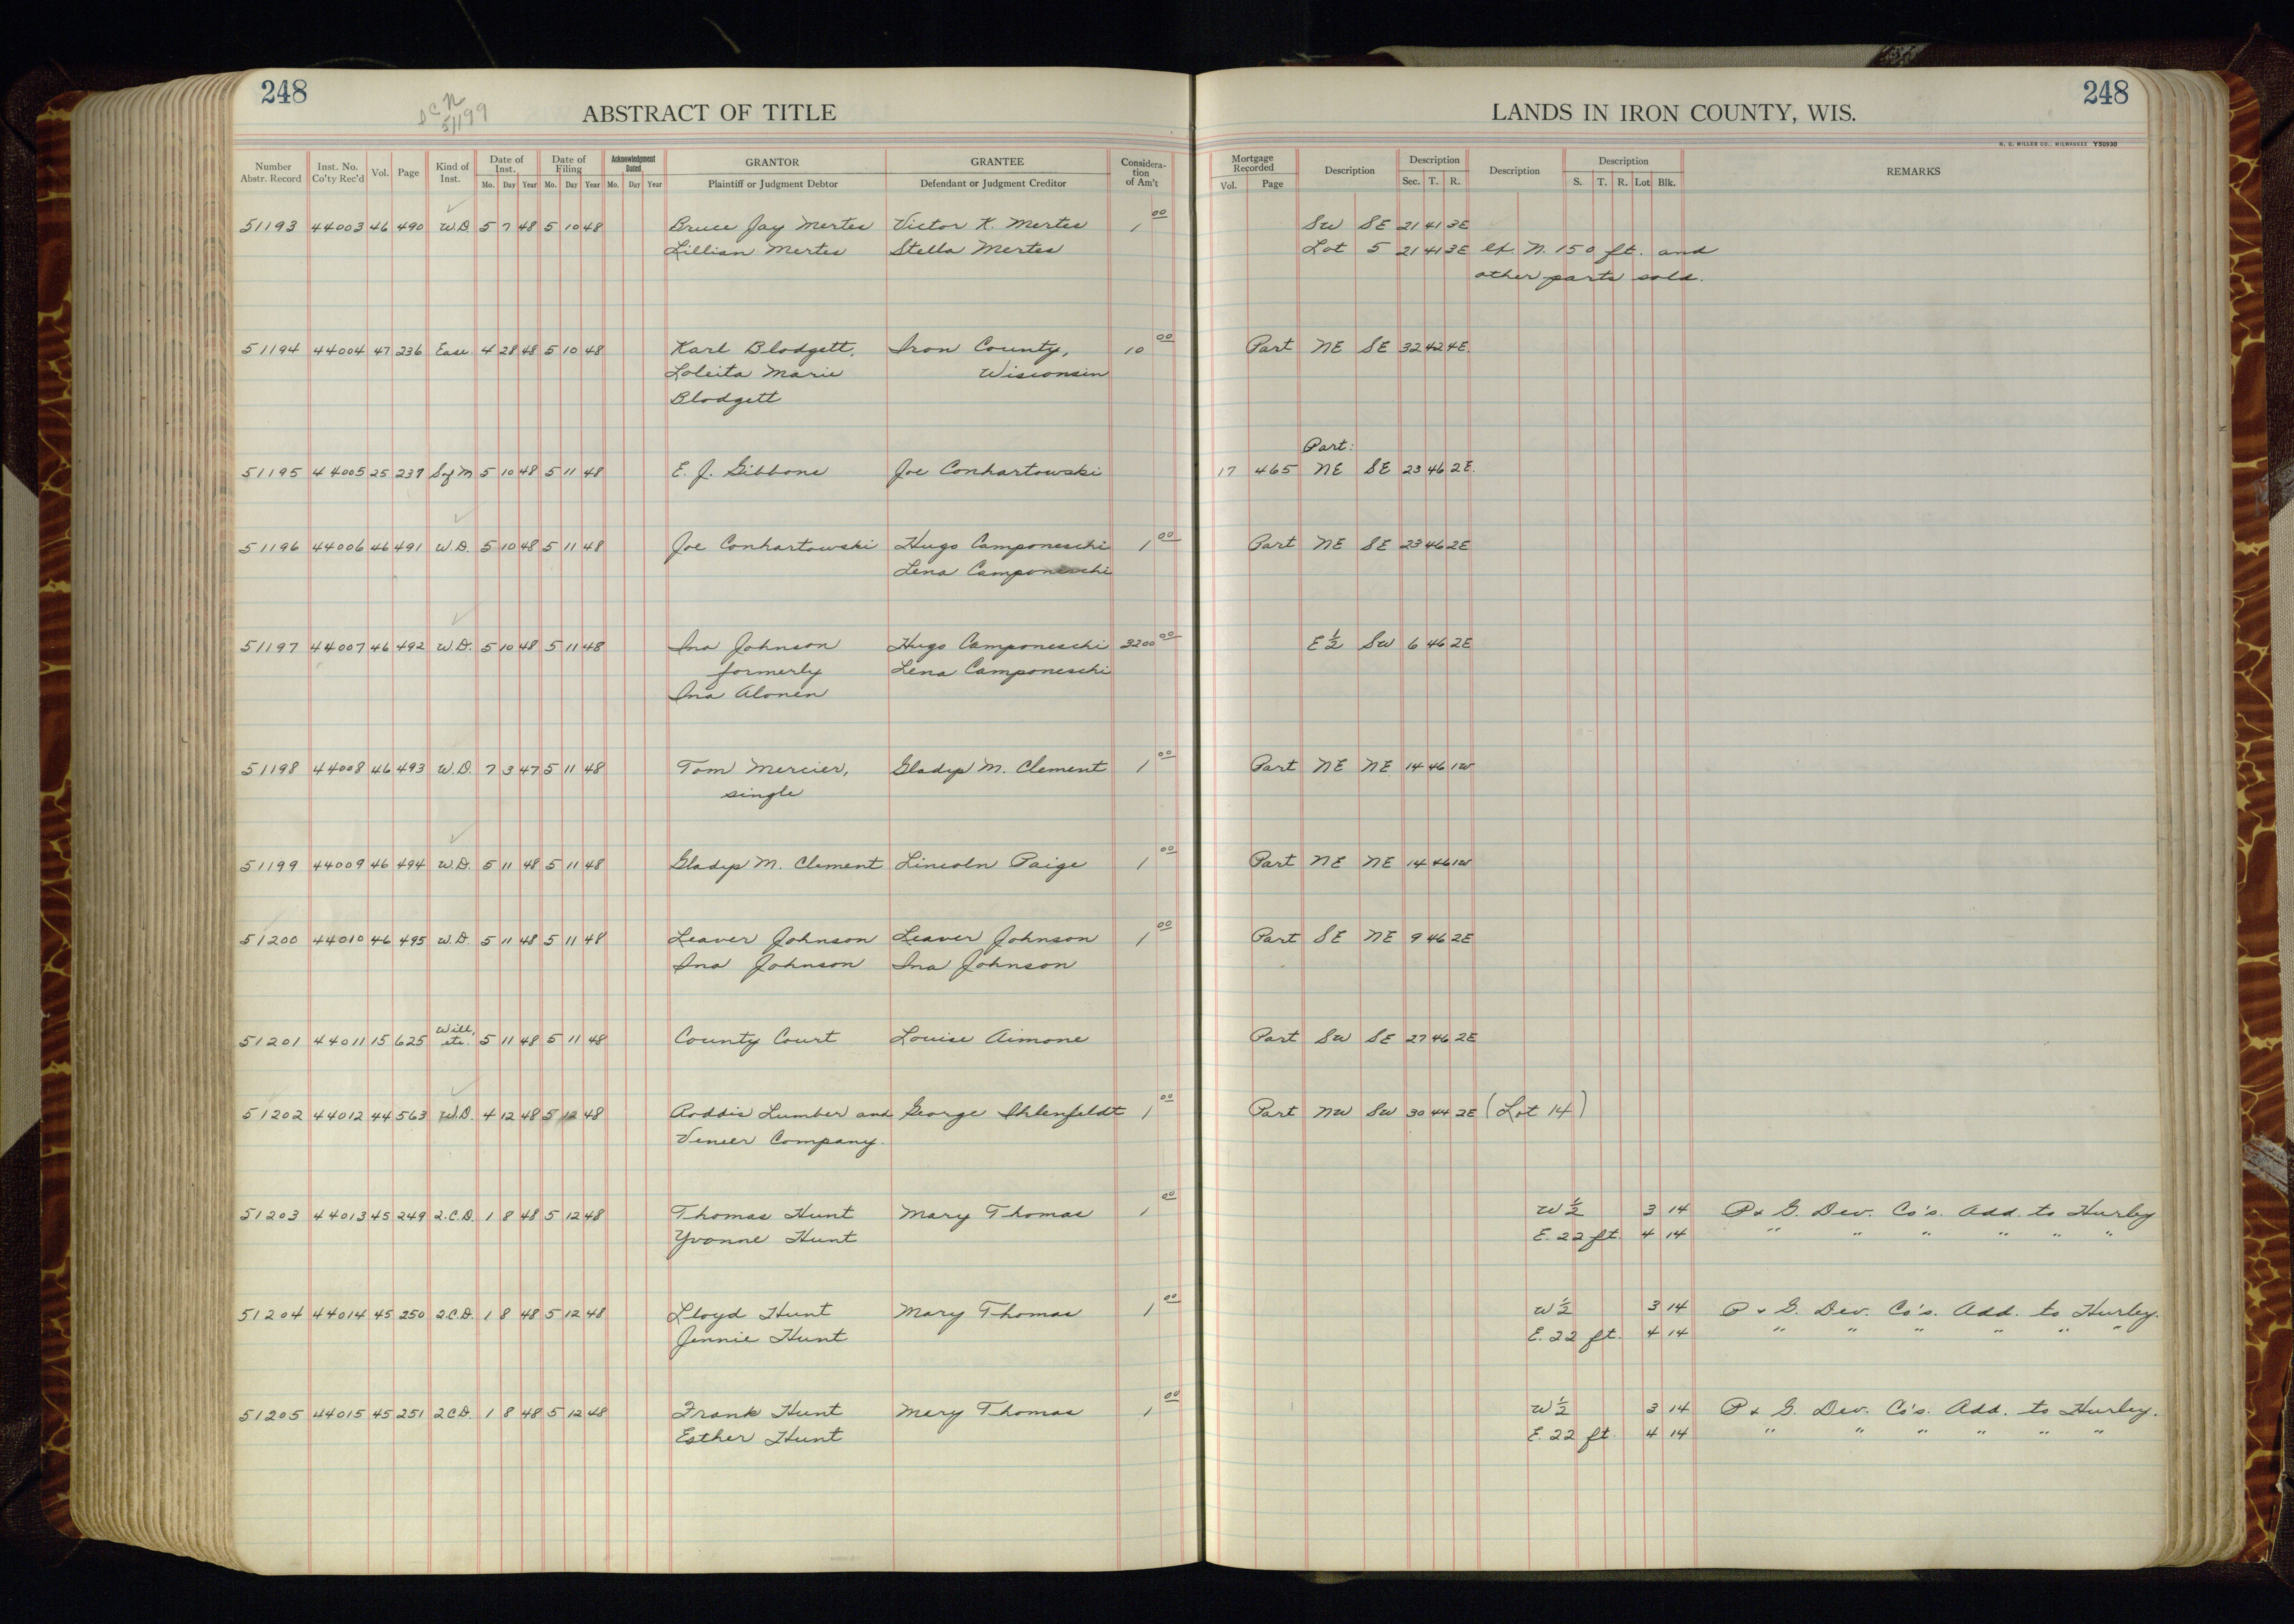 248
248
ABSTRACT OF TITLE
LANDS IN IRON COUNTY, WIS.
51199
H. C. MILLER CO., MILWAUKEE Y50930
Number Abstr. Record Inst. No. Co'ty Rec'd Vol. Page Kind of Inst. Date of Inst. Mo. Day Year Date of Filing Mo. Day Year Acknowledgment Dated Mo. Day Year GRANTOR Plaintiff or Judgment Debtor GRANTEE Defendant or Judgment Creditor Considera-tion of Am't Mortgage Recorded Vol. Page Description Description Sec. T. R. Description Description S. T. R. Lot Blk. REMARKS
51193 44003 46 490 W.D. 5 7 48 5 10 48 Bruce Jay Mertes Victor K. Mertes 1 00 SW SE 21 41 3E
Lillian Mertes Stella Mertes Lot 5 21 41 3E ex. N. 150 ft. and
other parts sold.
51194 44004 47 236 Ease. 4 28 48 5 10 48 Karl Blodgett, Iron County, 10 00 Part NE SE 32 42 4E
Loleita Marie Wisconsin
Blodgett
Part:
51195 44005 25 237 Sof M 5 10 48 5 11 48 E. J. Gibbons Joe Conhartowski 17 465 NE SE 23 46 2E.
51196 44006 46 491 W.D. 5 10 48 5 11 48 Joe Conhartowski Hugo Camponeschi 1 00 Part NE SE 23 46 2E
Lena Camponeschi
51197 44007 46 492 W.D. 5 10 48 5 11 48 Ina Johnson Hugo Camponeschi 3200 00 E 1/2 SW 6 46 2E
formerly Lena Camponeschi
Ina Alonen
51198 44008 46 493 W.D. 7 3 47 5 11 48 Tom Mercier, Gladys M. Clement 1 00 Part NE NE 14 46 1W
single
51199 44009 46 494 W.D. 5 11 48 5 11 48 Gladys M. Clement Lincoln Paige 1 00 Part NE NE 14 46 1W
51200 44010 46 495 W.D. 5 11 48 5 11 48 Leaver Johnson Leaver Johnson 1 00 Part SE NE 9 46 2E
Ina Johnson Ina Johnson
51201 44011 15 625 Will, etc. 5 11 48 5 11 48 County Court Louise Aimone Part SW SE 27 46 2E
51202 44012 44 563 W.D. 4 12 48 5 12 48 Roddis Lumber and George Ihlenfeldt 1 00 Part NW SW 30 44 2E (Lot 14)
Veneer Company.
51203 44013 45 249 2.C.D. 1 8 48 5 12 48 Thomas Hunt Mary Thomas 1 00 W 1/2 3 14 P & G. Dev. Co's. Add. to Hurley
Yvonne Hunt E. 22 ft. 4 14 " " " " " "
51204 44014 45 250 2.C.D. 1 8 48 5 12 48 Lloyd Hunt Mary Thomas 1 00 W 1/2 3 14 P & G. Dev. Co's. Add. to Hurley.
Jennie Hunt E. 22 ft. 4 14 " " " " " "
51205 44015 45 251 2.C.D. 1 8 48 5 12 48 Frank Hunt Mary Thomas 1 00 W 1/2 3 14 P & G. Dev. Co's. Add. to Hurley.
Esther Hunt E. 22 ft. 4 14 " " " " " "